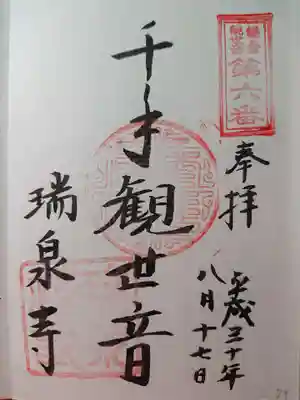 鎌倉
観世音
第六番
奉拝
平成三十年
八月十七日
千手観世音
瑞泉寺